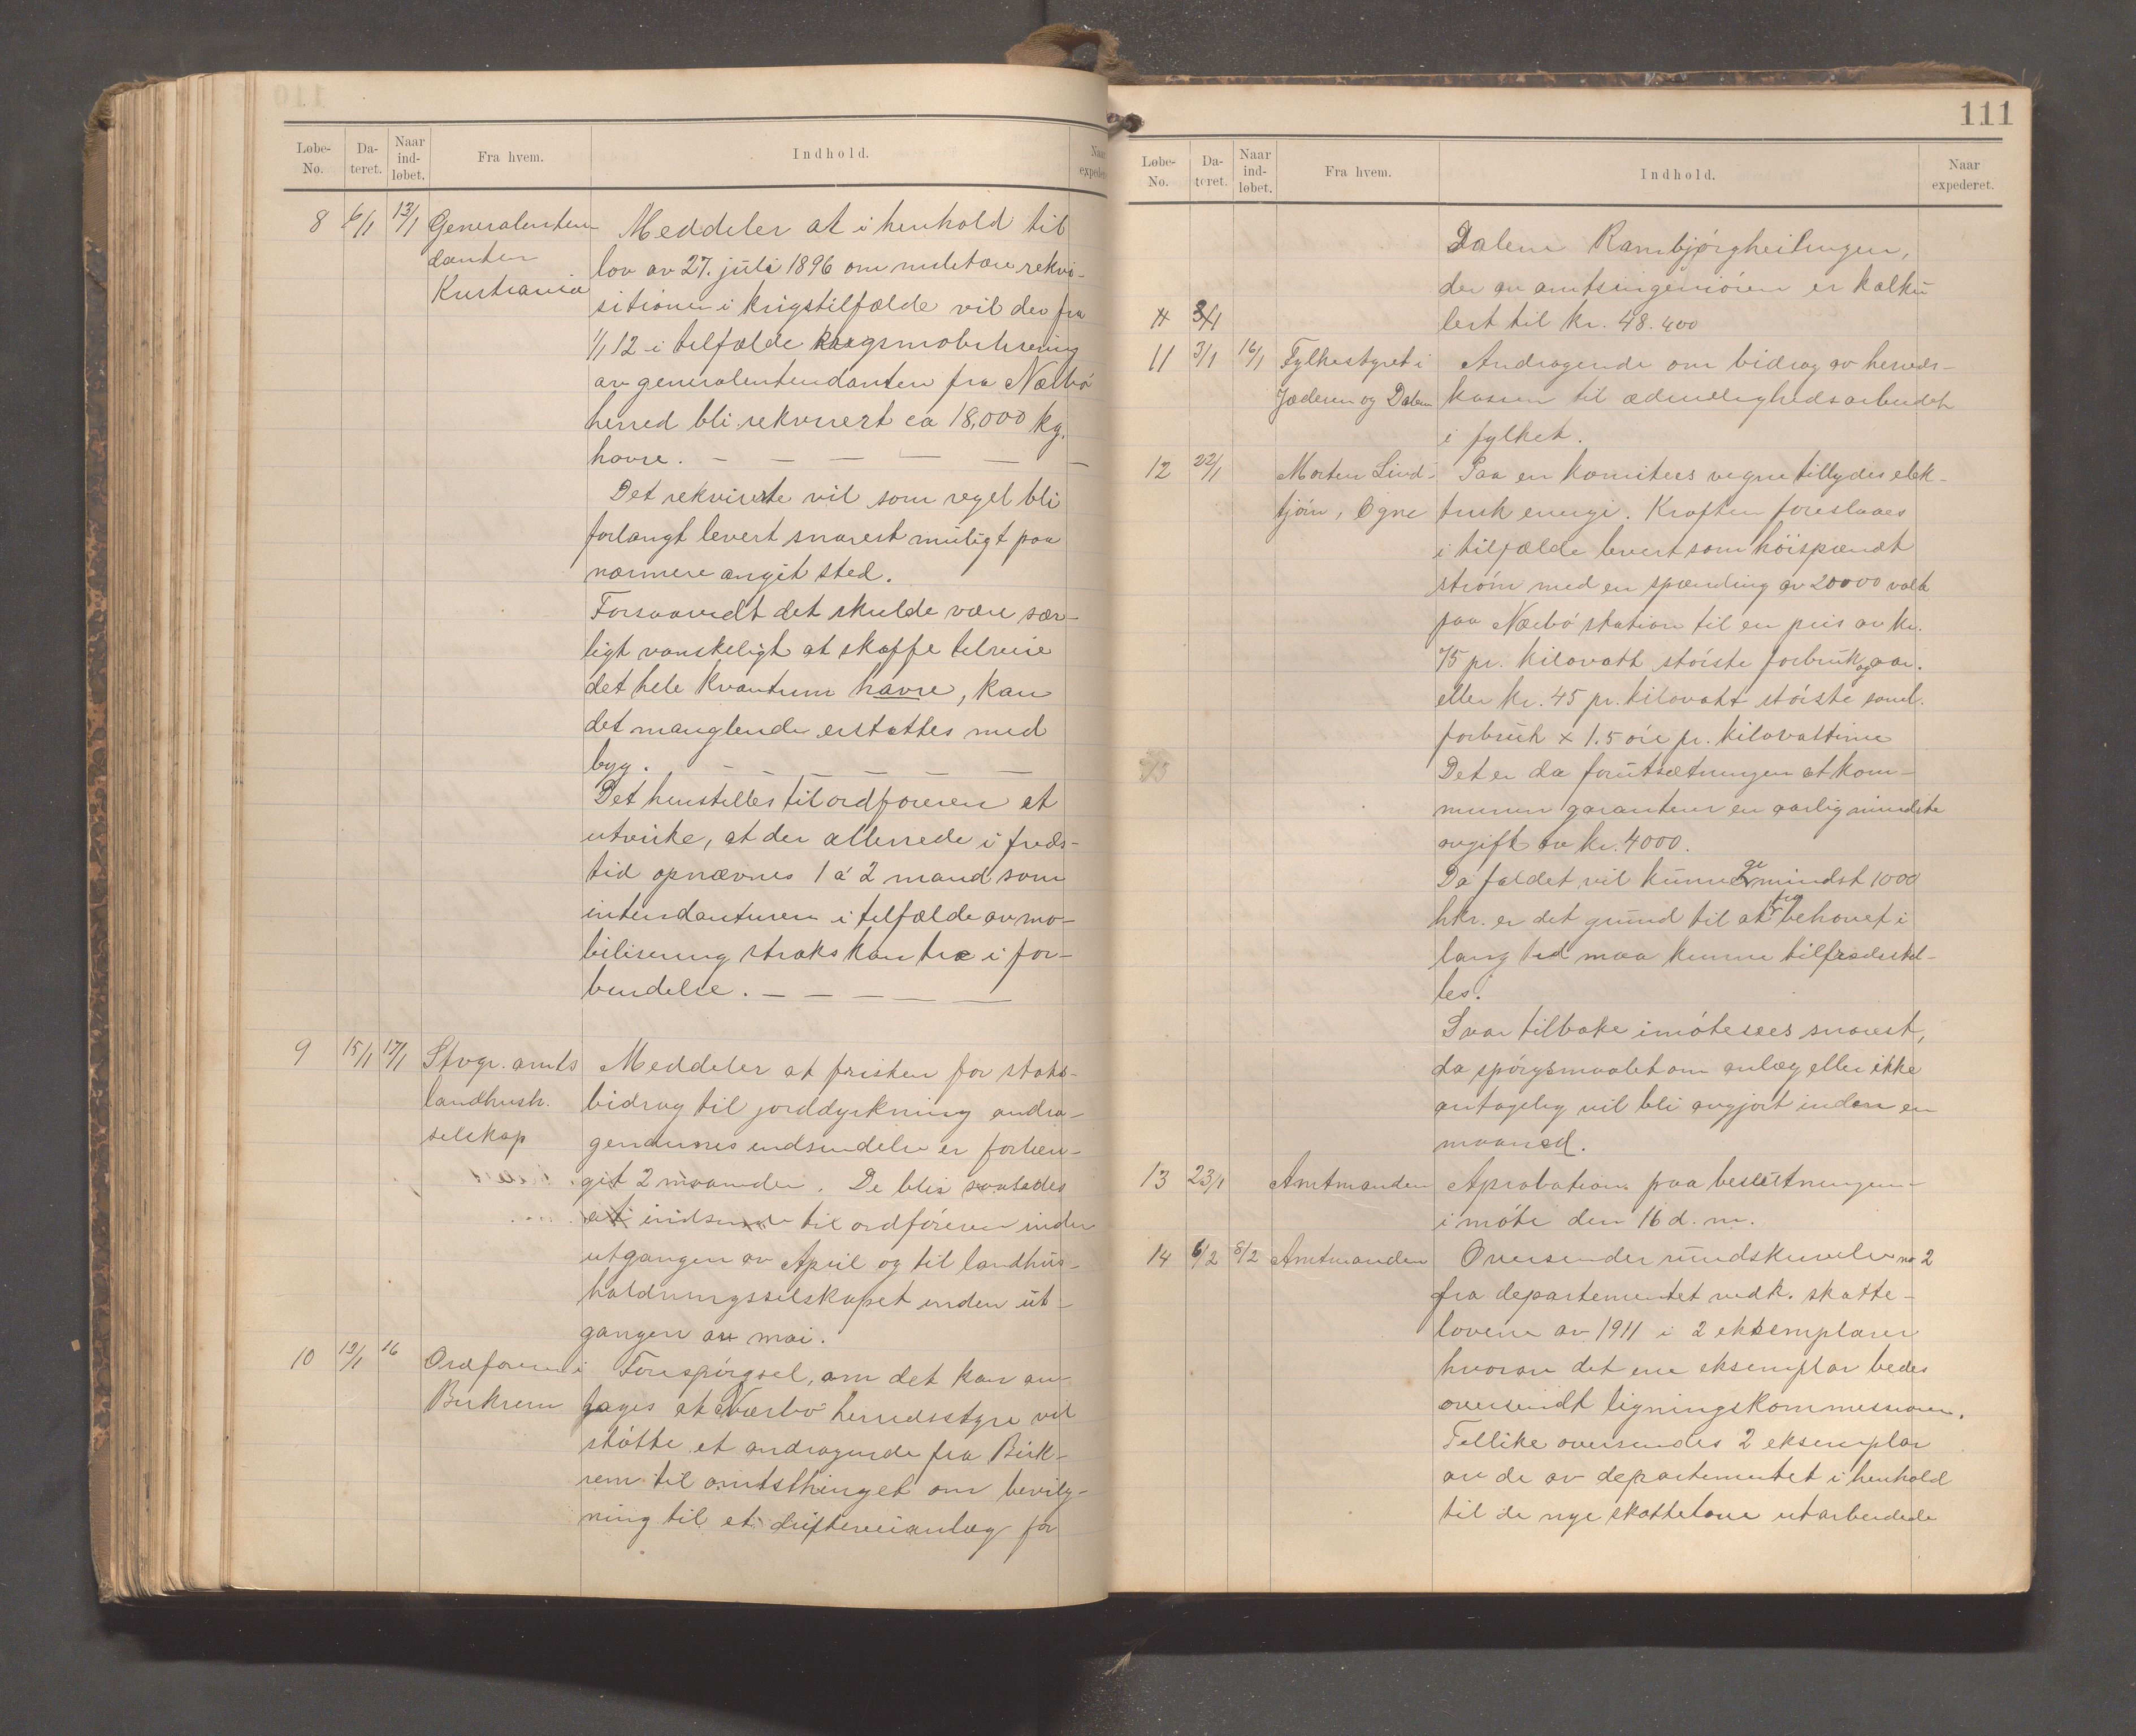 Løbe-No. Da-teret. Naar ind-løbet. Fra hvem. Indhold. Naar expederet.
8 6/1 13/1 Generalinten- Meddeler at i henhold til
danten lov av 27. juli 1896 om militære rekvi-
Kristiania sitioner i krigstilfælde vil der fra
1/1 12 i tilfælde krigsmobilisering
av generalintendanten fra Nærbø
herred bli rekvirert ca 18,000 kg.
havre. — — — — — —
Det rekvirerte vil som regel bli
forlangt levert snarest muligt paa
nærmere angit sted.
Forsaavidt det skulde være sær-
ligt vanskeligt at skaffe tilveie
det hele kvantum havre, kan
det manglende erstattes med
byg. — — — — — —
Det henstilles til ordføreren at
utvirke, at der allerede i freds-
tid opnævnes 1 á 2 mand som
intendanturen i tilfælde av mo-
bilisering straks kan træ i for-
bindelse. — — — — —
9 15/1 17/1 Stvgr. amts Meddeler at fristen for stats-
landhush. bidrag til jorddyrkning andra-
selskap gendernes indsendelse er forlæn-
git 2 maaneder. De blir saaledes
at indsende til ordføreren inden
utgangen av April og til landhus-
holdningsselskapet inden ut-
gangen av mai.
10 12/1 16 Ordføreren i Forespørgsel, om det kan an-
Birkrem tages at Nærbø herredsstyre vil
støtte et andragende fra Birk-
rem til amtsthinget om bevilg-
ning til et drifteveianlæg for
111
Løbe-No. Da-teret. Naar ind-løbet. Fra hvem. Indhold. Naar expederet.
Dalene
der av amtsingeniøren er kalku
11 3/1 lert til kr. 48.400
11 3/1 16/1 Fylkestyret i Andragende om bidrag av herreds-
Jæderen og Dalene kassen til ædruelighedsarbeidet
i fylket.
12 22/1 Morten Lind- Paa en komitees vegne tilbydes elek-
tjørn, Ogne trisk energi. Kraften foreslaaes
i tilfælde levert som høispændt
strøm med en spænding av 20000 volt
paa Nærbø station til en pris av kr.
75 pr. kilovatt største forbruk og aar.
eller kr. 45 pr. kilovatt største saml.
forbruk + 1.5 øre pr. kilovattime
Det er da forutsætningen at kom-
munen garanterer en aarlig mindste
avgift av kr. 4000.
Da faldet vil kunne gi mindst 1000
hkr. er det grund til at behovet i
lang tid maa kunne tilfredsstil-
les.
Svar tilbake imøtesees snarest,
da spørgsmaalet om anlæg eller ikke
antagelig vil bli avgjort inden en
maaned.
13 23/1 Amtmanden Aprobation paa beslutningen
i møte den 16 d. m.
14 6/2 8/2 Amtmanden Oversender rundskrivelse no 2
fra departementet vedk. skatte-
lovene av 1911 i 2 eksemplarer
hvorav det ene eksemplar bedes
oversendt ligningskommissionen.
Tillike oversendes 2 eksemplar
av de av departementet i henhold
til de nye skattelove utarbeidede